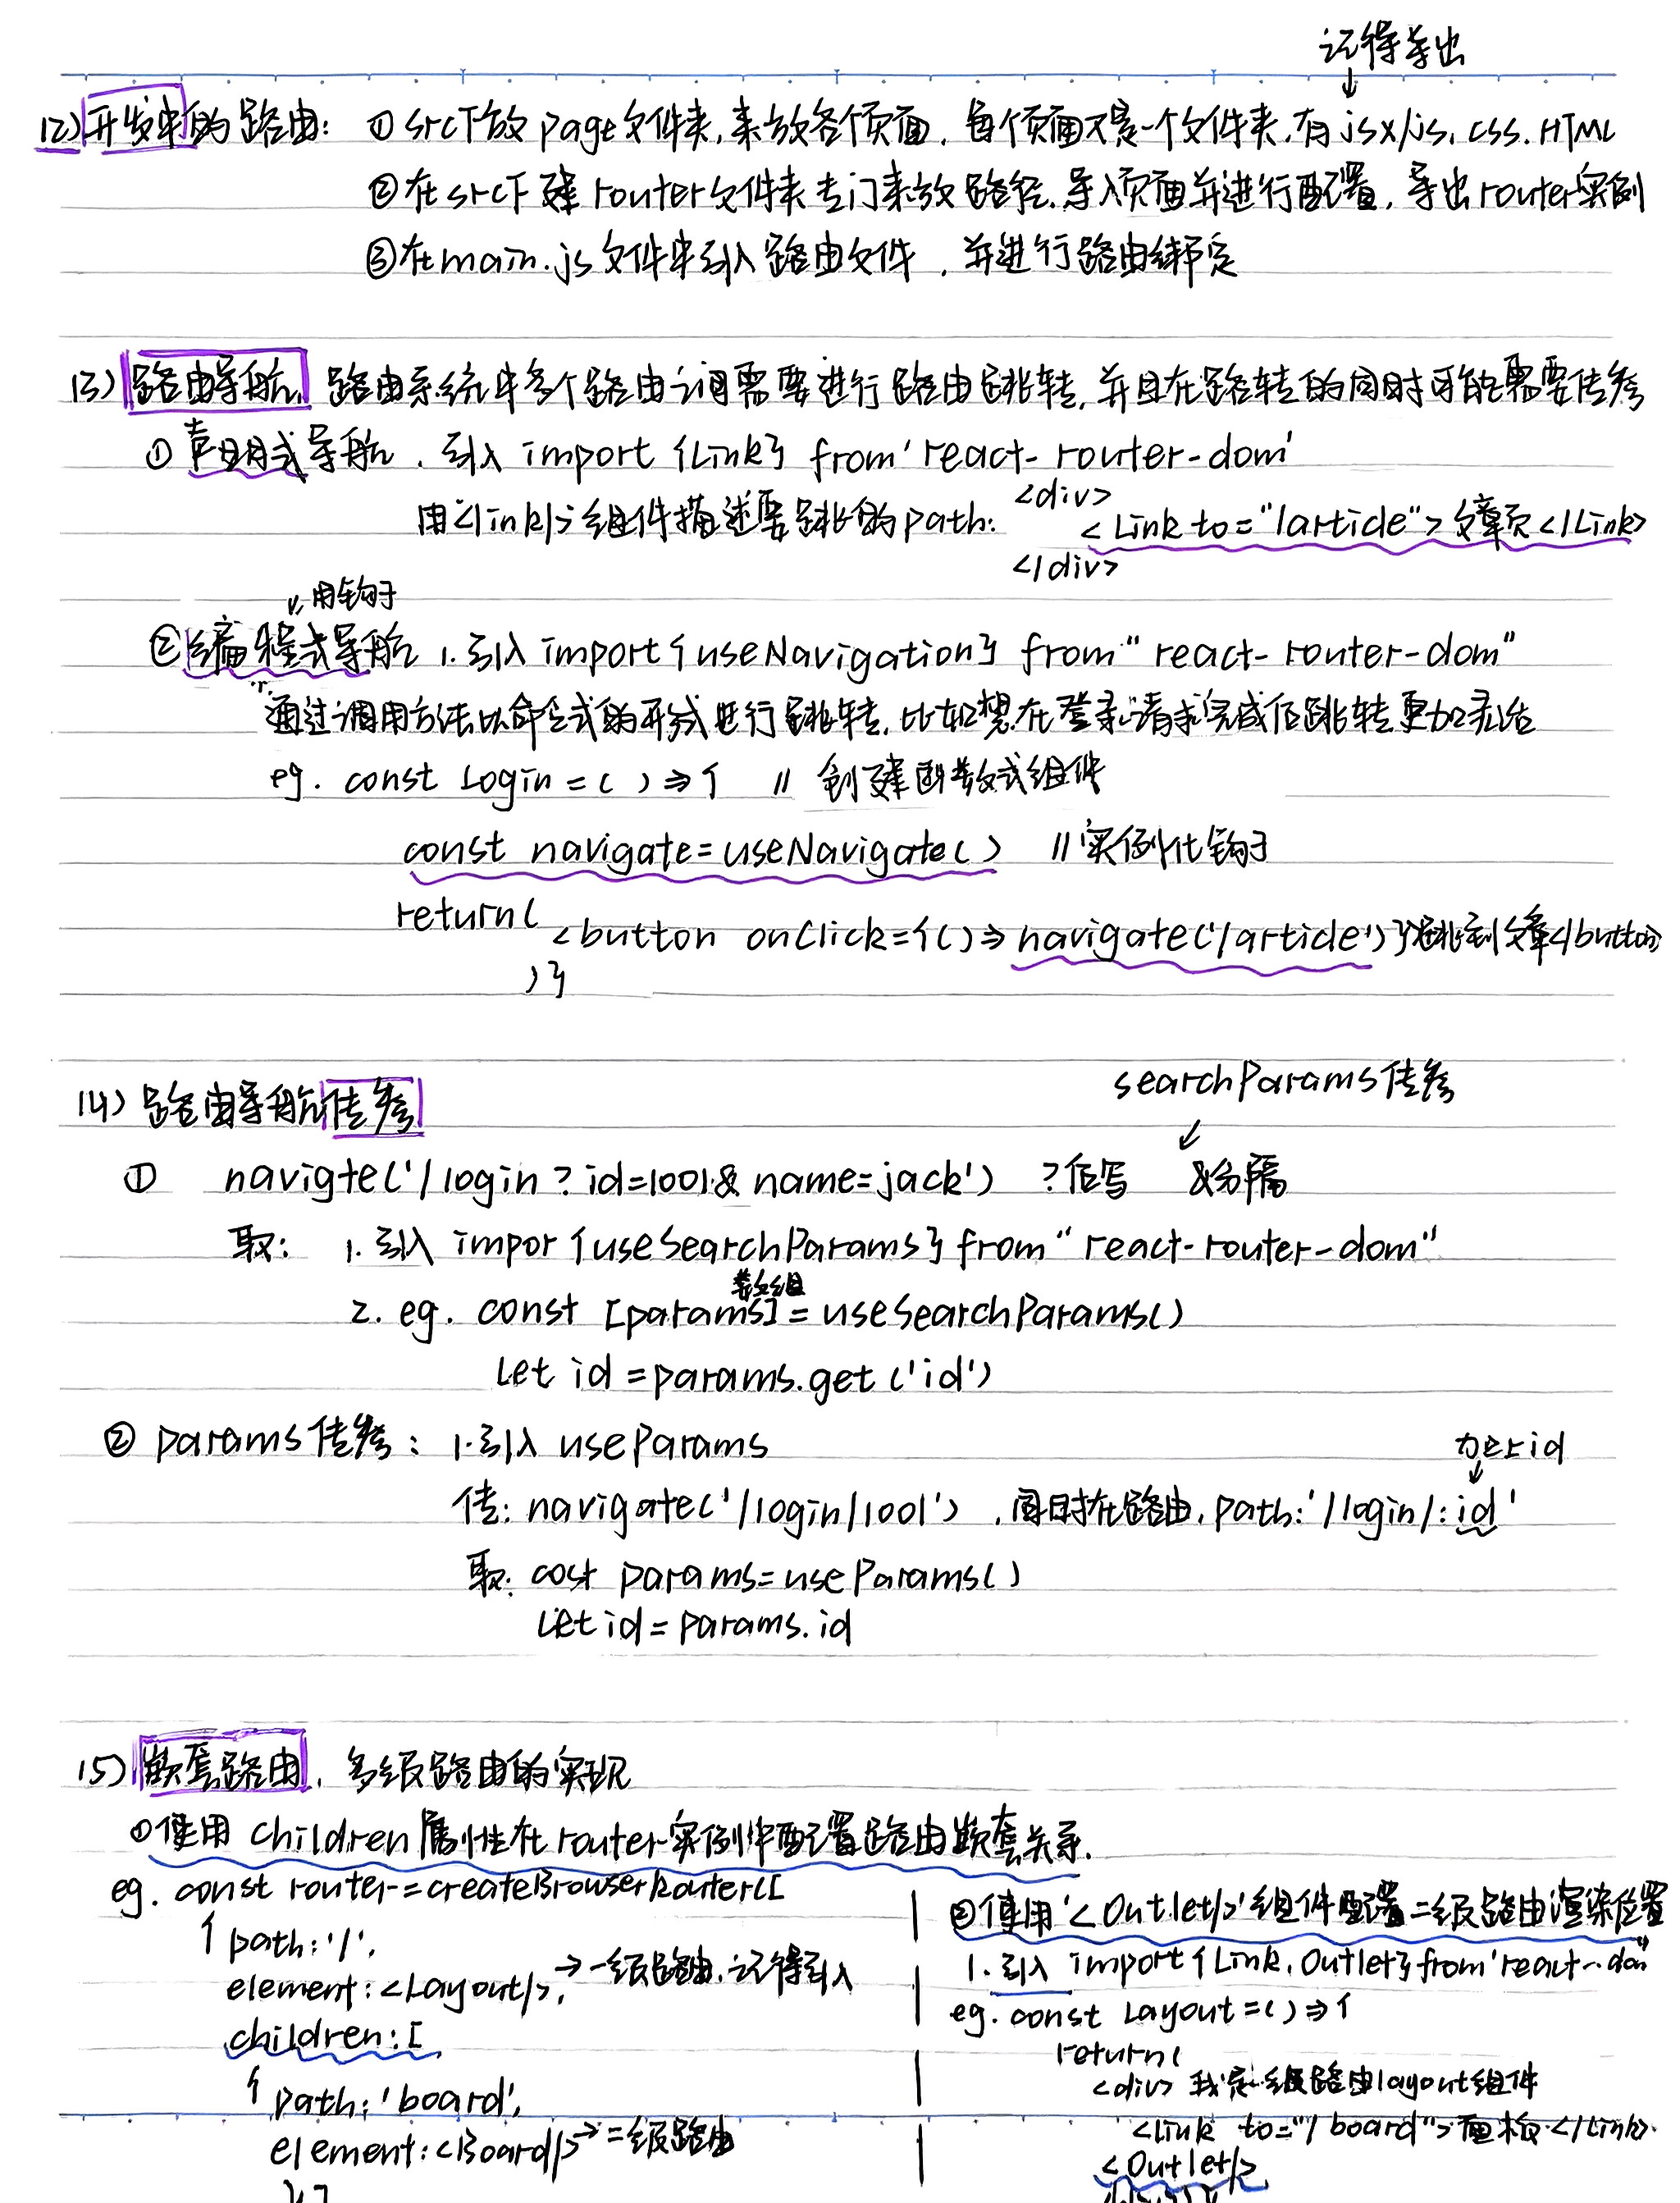 记得导出
↓
12) 开发中的路由: ① src下放page文件夹,来放各个页面, 每个页面又是一个文件夹,有jsx/js, css. HTML
②在src下建router文件夹专门来放路径,导入页面并进行配置, 导出router实例
③在main.js文件中引入路由文件, 并进行路由绑定
13) 路由导航. 路由系统中多个路由之间需要进行路由跳转, 并且在跳转的同时可能需要传参
① 声明式导航. 引入 import {Link} from 'react-router-dom'
<div>
用<link/>组件描述要跳的path: <Link to="/article">文章页</Link>
</div>
↓用钩子
②编程式导航 1.引入 import {useNavigation} from "react-router-dom"
通过调用方法以命令式的形式进行跳转, 比如想在登录请求完成后跳转更加灵活
eg. const Login = ( ) => { // 创建函数式组件
const navigate=useNavigate( ) // 实例化钩子
return(
<button onClick={()=>navigate('/article')}>跳到文章</button>
)}
searchParams传参
↙
14) 路由导航传参
① navigte('/login?id=1001&name=jack') ?后写 &分隔
取: 1.引入 impor {useSearchParams} from "react-router-dom"
数组
2. eg. const [params]=useSearchParams()
let id=params.get('id')
② params传参: 1.引入 useParams
id
↓
传: navigate('/login/1001') ,同时在路由, path:'/login/:id'
取: cost params=useParams()
let id=params.id
15) 嵌套路由, 多级路由的实现
①使用 children属性在router实例中配置路由嵌套关系.
eg. const router=createBrowserRouter([
{ path:'/',
element:<Layout/>, →一级路由,记得引入
children:[
{ path:'board',
element:<Board/> →二级路由
}]
②使用'<Outlet/>'组件配置二级路由渲染位置
1.引入 import {Link, Outlet} from 'react-dom"
eg. const Layout=()=>{
return(
<div> 我是一级路由layout组件
<link to="/board">面板</Link>
<Outlet/>